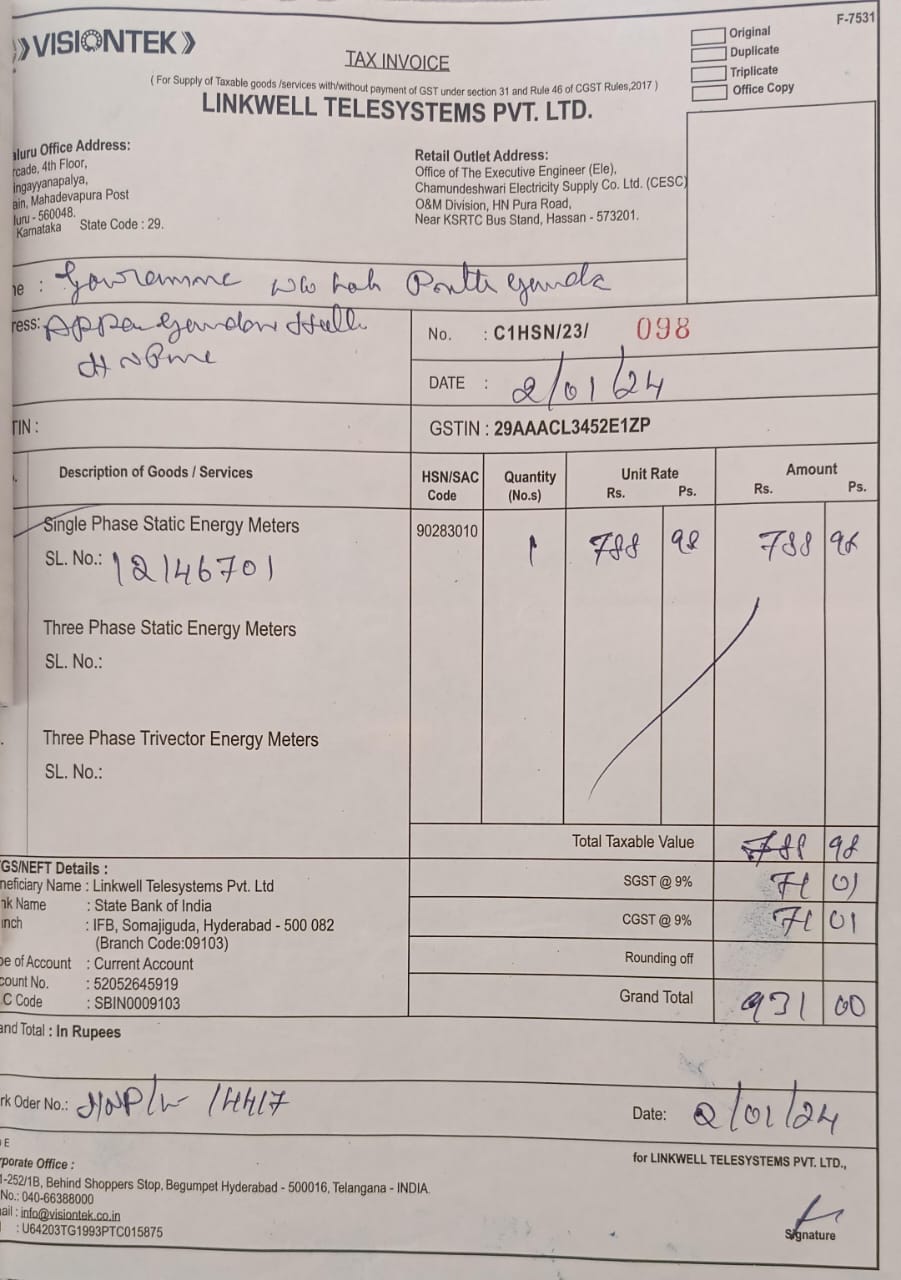 F-7531
VISIONTEK
Original
Duplicate
Triplicate
Office Copy
TAX INVOICE
( For Supply of Taxable goods /services with/without payment of GST under section 31 and Rule 46 of CGST Rules,2017 )
LINKWELL TELESYSTEMS PVT. LTD.
aluru Office Address:
rcade, 4th Floor,
ingayyanapalya,
ain, Mahadevapura Post
luru - 560048.
Karnataka State Code : 29.
Retail Outlet Address:
Office of The Executive Engineer (Ele),
Chamundeshwari Electricity Supply Co. Ltd. (CESC)
O&M Division, HN Pura Road,
Near KSRTC Bus Stand, Hassan - 573201.
ne : Gowramma
ress:
No. : C1HSN/23/ 098
DATE : 2/01/24
TIN :
GSTIN : 29AAACL3452E1ZP
Description of Goods / Services
HSN/SAC Code
Quantity (No.s)
Unit Rate
Rs. Ps.
Amount
Rs. Ps.
Single Phase Static Energy Meters 90283010 1 788 98 788 98
SL. No.: 12146701
Three Phase Static Energy Meters
SL. No.:
Three Phase Trivector Energy Meters
SL. No.:
Total Taxable Value 788 98
SGST @ 9% 71 01
CGST @ 9% 71 01
Rounding off
Grand Total 931 00
GS/NEFT Details :
neficiary Name : Linkwell Telesystems Pvt. Ltd
nk Name : State Bank of India
anch : IFB, Somajiguda, Hyderabad - 500 082
(Branch Code:09103)
pe of Account : Current Account
count No. : 52052645919
C Code : SBIN0009103
and Total : In Rupees
rk Oder No.: HNP/W 1447
Date: 2/01/24
E
porate Office :
1-252/1B, Behind Shoppers Stop, Begumpet Hyderabad - 500016, Telangana - INDIA.
No.: 040-66388000
ail : info@visiontek.co.in
: U64203TG1993PTC015875
for LINKWELL TELESYSTEMS PVT. LTD.,
Signature